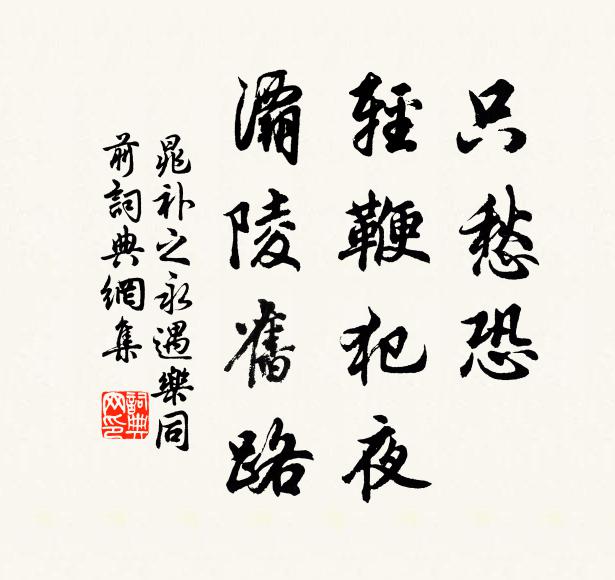 只愁恐
輕鞭犯夜
灞陵舊路
晁补之永遇樂同
前詞典網集
詞典网印